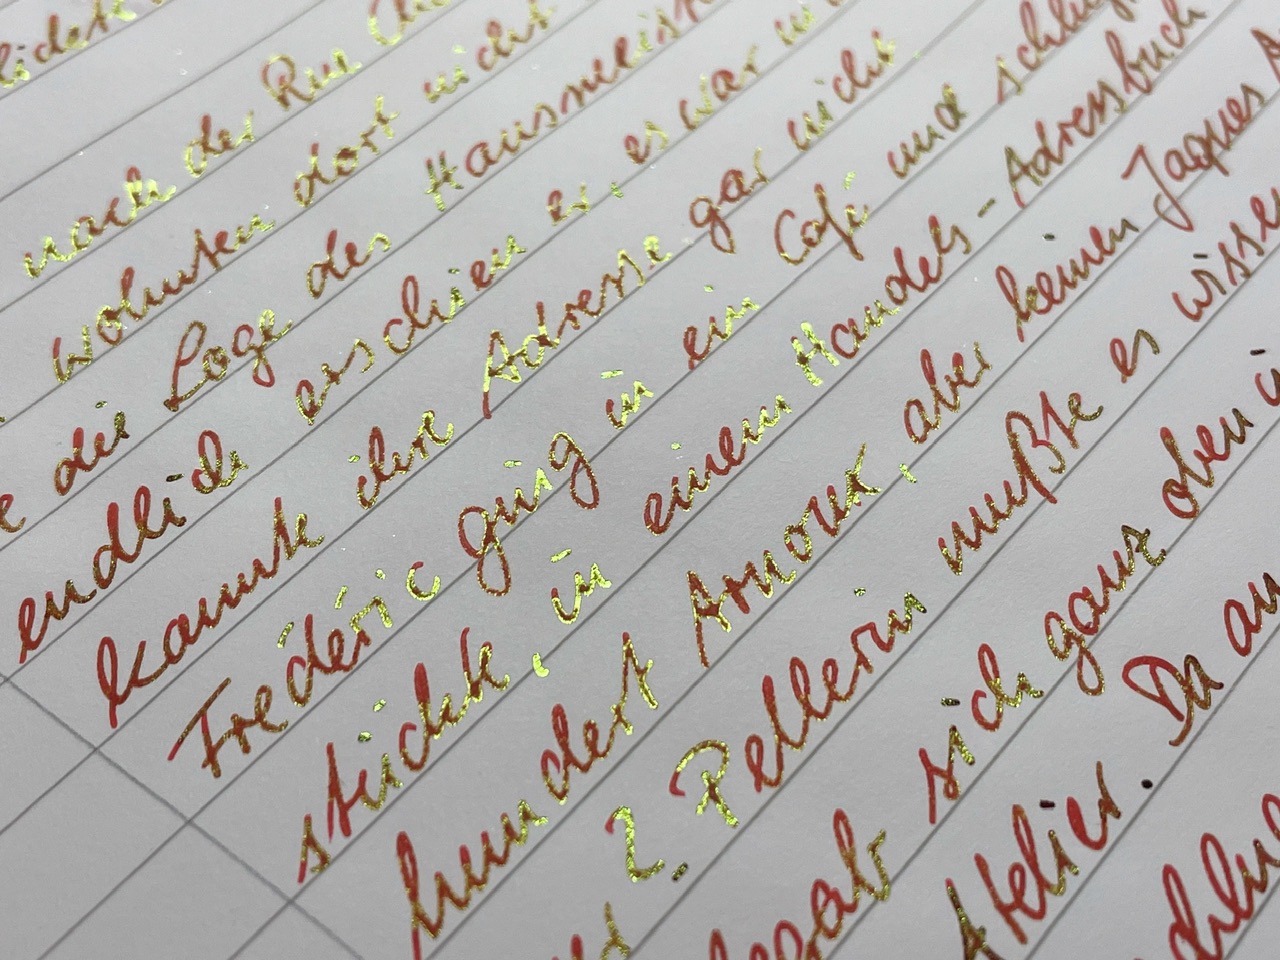 nach der Rue
wohnten dort nicht
die Loge des Hausmeist
endlich erschien er, es war
kannte ihre Adresse gar nicht.
Frederic ging in ein Café und schlug
stickt, in einem Handels-Adressbuch
hundert Arnoux, aber keinen Jaques A
2 Pellerin mußte es wissen
sich ganz oben
Atelier. Da